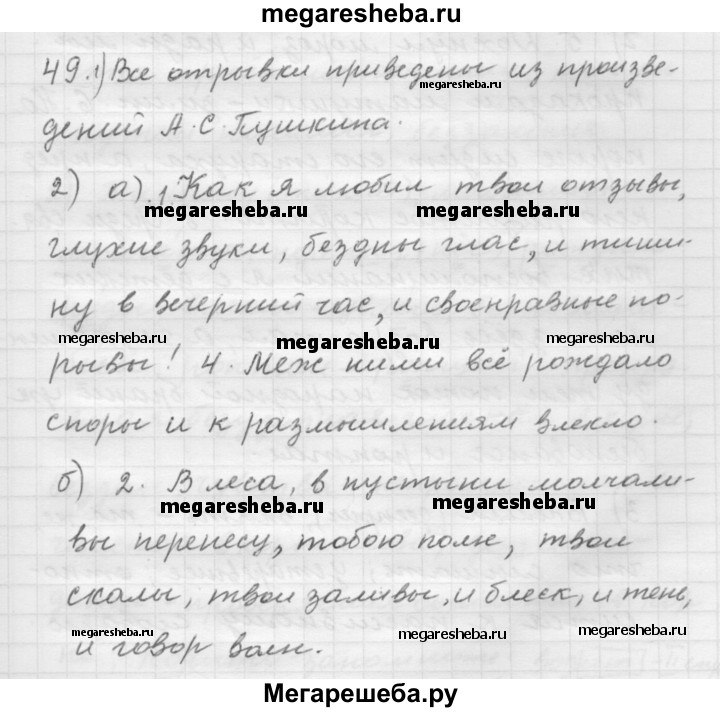 megaresheba.ru
49. 1) Все отрывки приведены из произве-
megaresheba.ru
дений А. С. Пушкина.
2) а) 1. Как я любил твои отзывы,
megaresheba.ru megaresheba.ru
глухие звуки, бездны глас, и тиши-
ну в вечерний час, и своенравные по-
megaresheba.ru megaresheba.ru megaresheba.ru
рывы! 4. Меж ними всё рождало
споры и к размышлениям влекло.
megaresheba.ru
б) 2. В леса, в пустыни молчали-
megaresheba.ru megaresheba.ru
вы перенесу, тобою полн, твои
скалы, твои заливы, и блеск, и тень,
megaresheba.ru megaresheba.ru megaresheba.ru
и говор волн.
Мегарешеба.ру